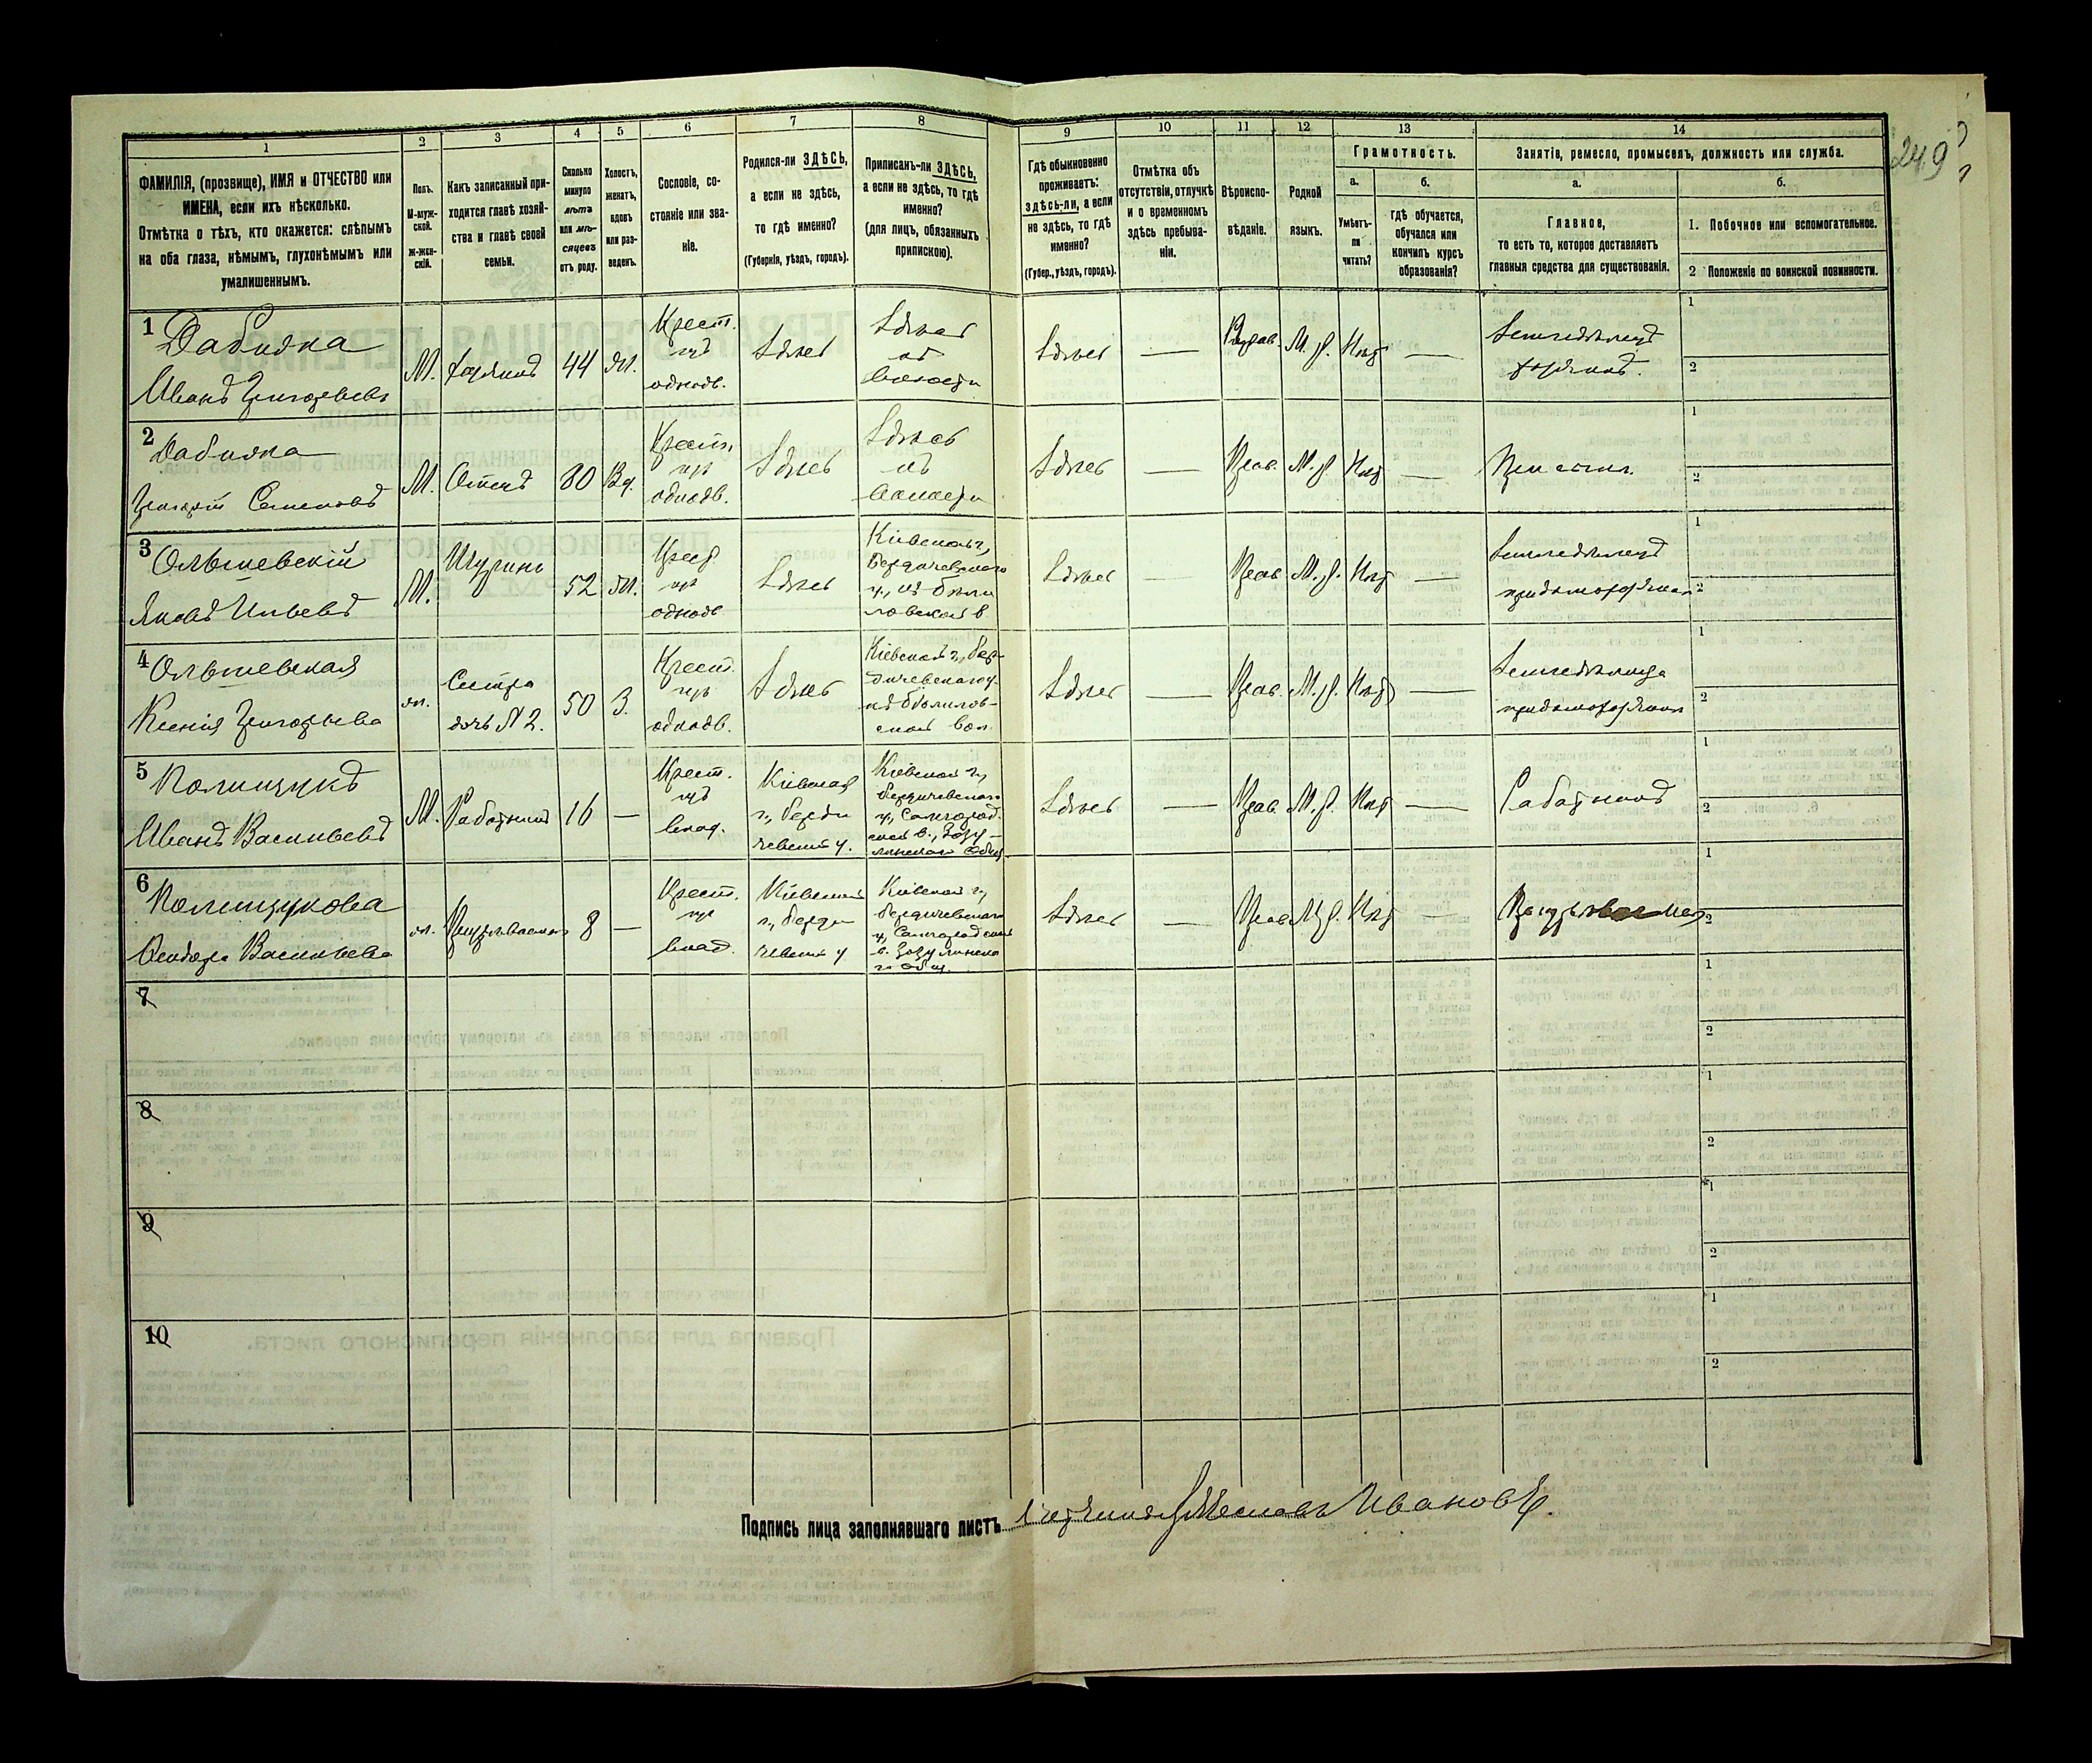 249
1 2 3 4 5 6 7 8 9 10 11 12 13 14
ФАМИЛІЯ, (прозвище), ИМЯ и ОТЧЕСТВО или
ИМЕНА, если ихъ нѣсколько.
Отмѣтка о тѣхъ, кто окажется: слѣпымъ
на оба глаза, нѣмымъ, глухонѣмымъ или
умалишеннымъ.
Полъ.
М-муж-
ской.
Ж-жен-
скій.
Какъ записанный при-
ходится главѣ хозяй-
ства и главѣ своей
семьи.
Сколько
минуло
лѣтъ
или мѣ-
сяцевъ
отъ роду.
Холостъ,
женатъ,
вдовъ
или раз-
веденъ.
Сословіе, со-
стояніе или зва-
ніе.
Родился-ли ЗДѢСЬ,
а если не здѣсь,
то гдѣ именно?
(Губернія, уѣздъ, городъ).
Приписанъ-ли ЗДѢСЬ,
а если не здѣсь, то гдѣ
именно?
(для лицъ, обязанныхъ
припискою).
Гдѣ обыкновенно
проживаетъ:
здѣсь-ли, а если
не здѣсь, то гдѣ
именно?
(Губер., уѣздъ, городъ).
Отмѣтка объ
отсутствіи, отлучкѣ
и о временномъ
здѣсь пребыва-
ніи.
Вѣроиспо-
вѣданіе.
Родной
языкъ.
Грамотность.
а.
Умѣетъ-
ли
читать?
б.
Гдѣ обучается,
обучался или
кончилъ курсъ
образованія?
Занятіе, ремесло, промыселъ, должность или служба.
а.
Главное,
то есть то, которое доставляетъ
главныя средства для существованія.
б.
1. Побочное или вспомогательное.
2 Положеніе по воинской повинности.
1
Иванъ Григорьевъ
М. хозяинъ 44
Крест.
изъ
однодв.
Здѣсь
Здѣсь
въ
волости
Здѣсь — Прав. М. р. Нѣтъ —
Земледѣлецъ
хозяинъ.
1
2
2
Григорій Семеновъ
М. Отецъ 80 Вд.
Крест.
изъ
однодв.
Здѣсь
Здѣсь
въ
волости
Здѣсь — Прав. М. р. Нѣтъ —
При сынѣ
1
2
3 Ольшевскій
Яковъ Ильевъ
М. Шуринъ 52
Крест.
изъ
однодв.
Здѣсь
Кіевской г.,
Бердичевскаго
Здѣсь — Прав. М. р. Нѣтъ —
Земледѣлецъ
1
2
4 Ольшевская
Ксенія Григорьева
Сестра
дочь N 2.
50 З.
Крест.
изъ
однодв.
Здѣсь
Кіевской г., Бер-
дичевскаго у.
Здѣсь — Прав. М. р. Нѣтъ —
Земледѣлица
1
2
5 Полищукъ
Иванъ Васильевъ
М. Работникъ 16 —
Крест.
изъ
влад.
Кіевская
г., Берди
чевскій у.
Кіевской г.,
Бердичевскаго
у., Самгород-
ской в., Зозу-
линскаго Общ.
Здѣсь — Прав. М. р. Нѣтъ —
Работникъ
1
2
6 Полищукова
Ѳеодора Васильева
8 —
Крест.
изъ
влад.
Кіевской
г., Берди
чевскій у
Кіевской г.,
Бердичевскаго
у., Самгородской
в. Зозулинска
го Общ.
Здѣсь — Прав. М. р. Нѣтъ —
1
2
7
1
2
8
1
2
9
1
2
10
1
2
Подпись лица заполнявшаго листъ